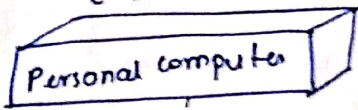 Personal computer